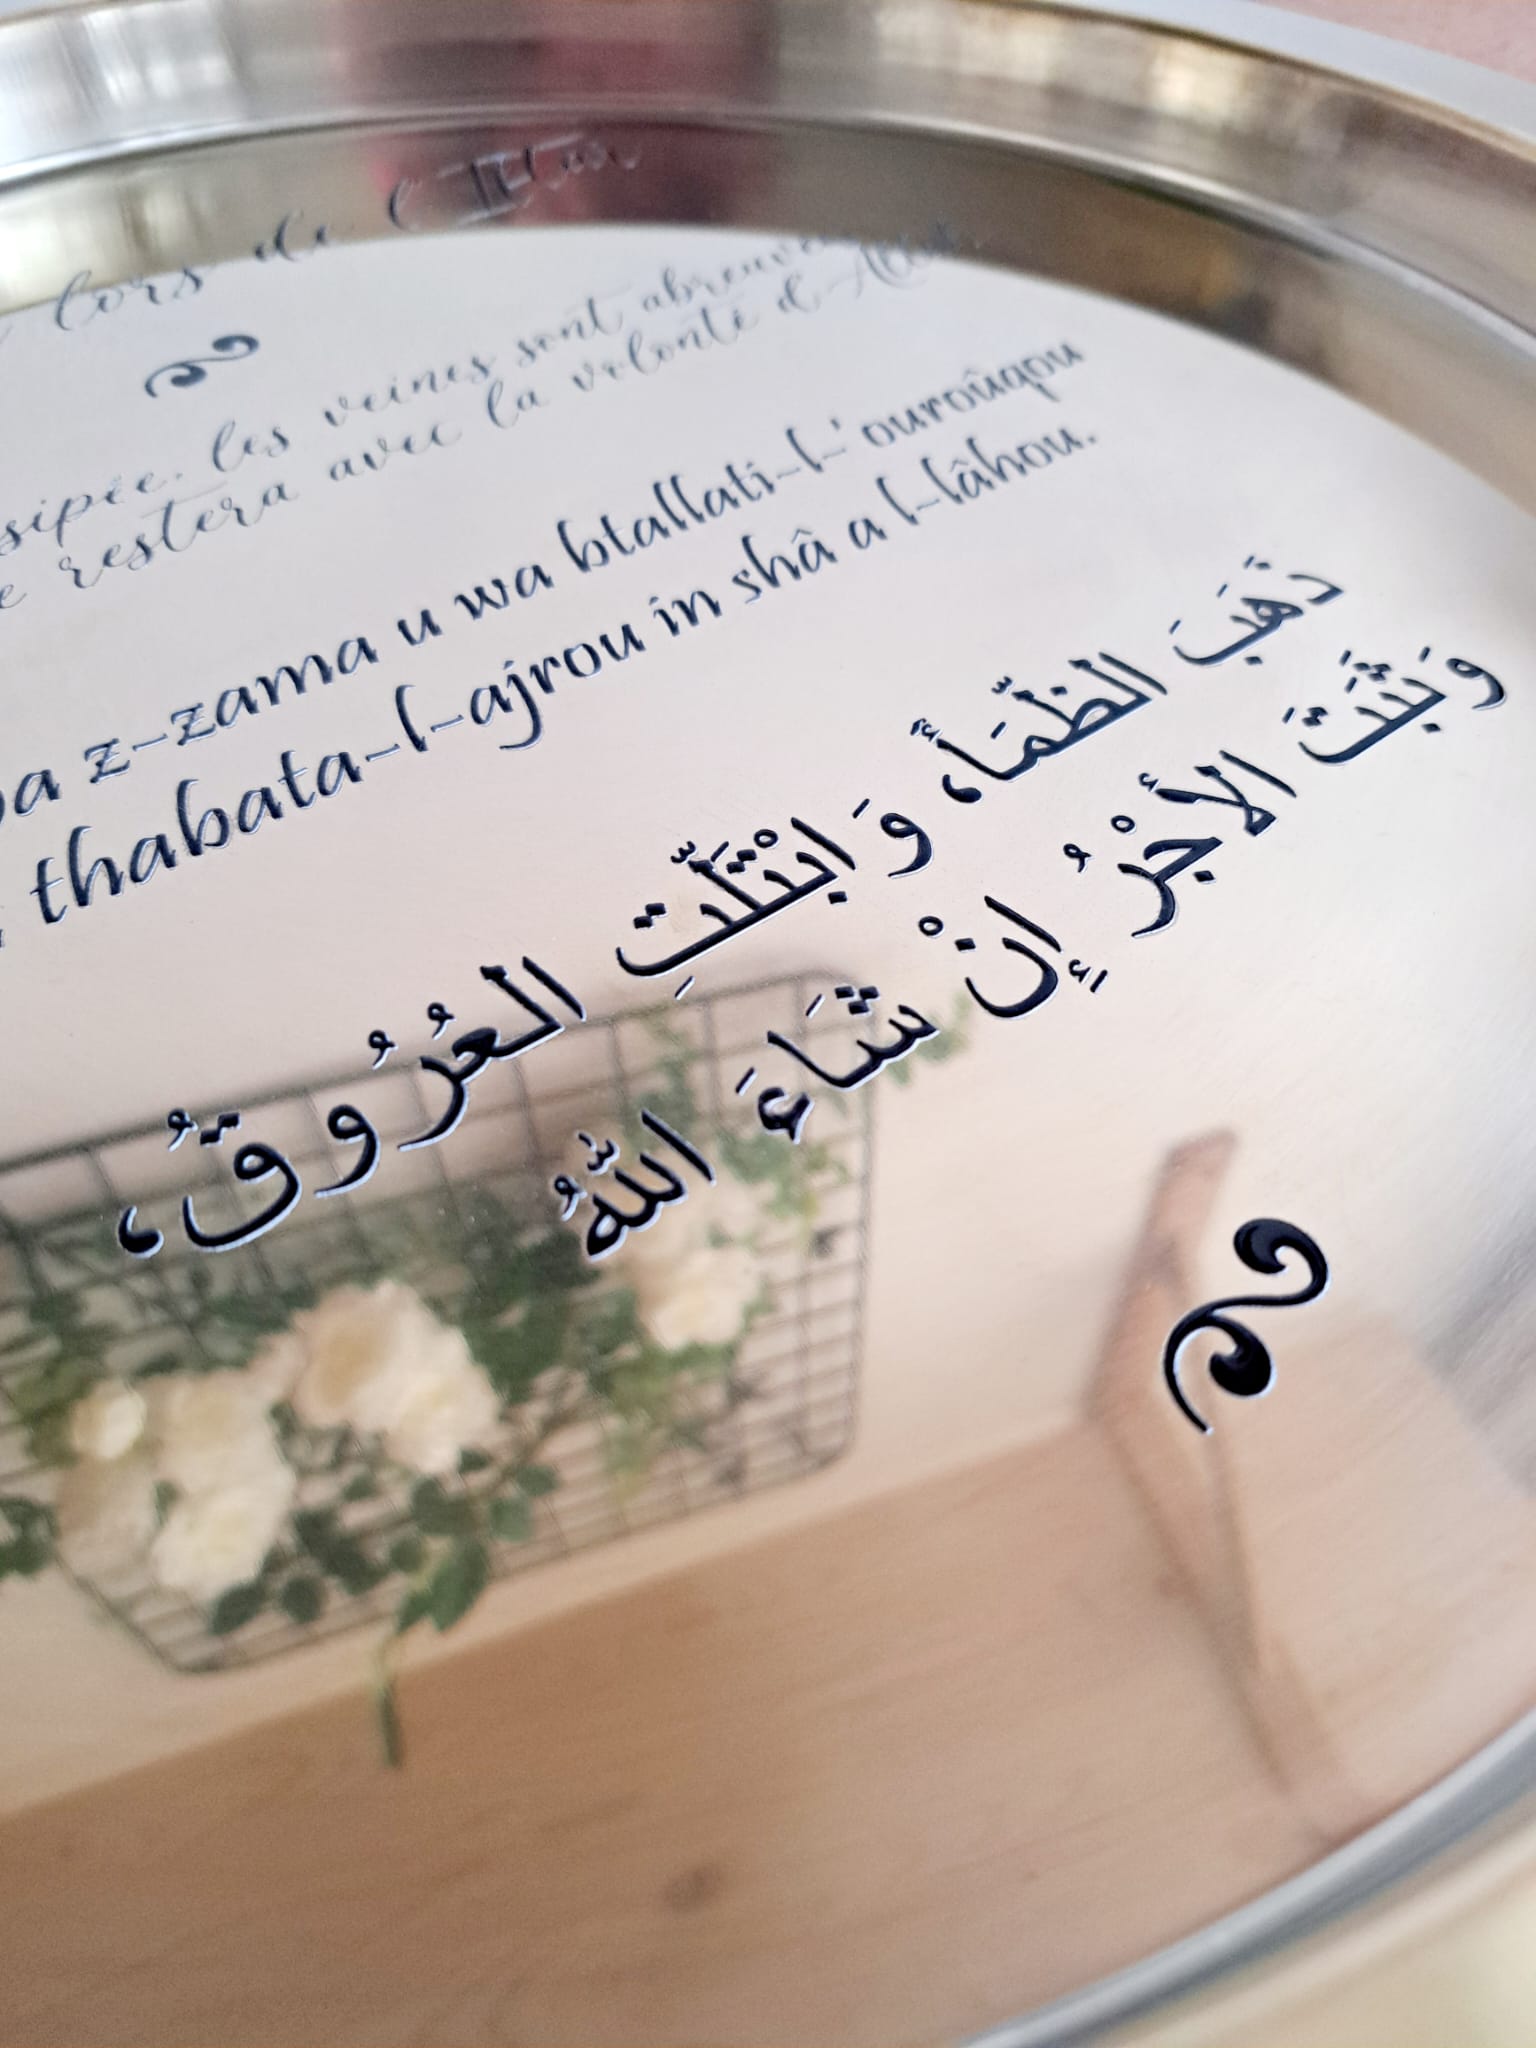 lors de l'Iftar
sipée, les veines sont
restera avec la volonté d'Allah.
z-zama u wa btallati-l-'ouroûqou
thabata-l-ajrou in shâ a l-lâhou.
ذَهَبَ الظَّمَأُ، وَ ابْتَلَّتِ العُرُوقُ،
وَثَبَتَ الأَجْرُ إِنْ شَاءَ اللهُ